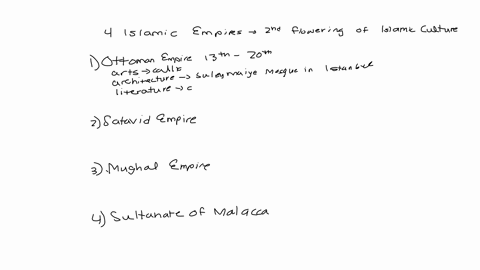 4 Islamic Empires → 2nd flowering of Islamic Culture
1) Ottoman Empire 13th - 20th
arts →
architecture → Suleymaiye Mosque in Istanbul
literature → c
2) Safavid Empire
3) Mughal Empire
4) Sultanate of Malacca